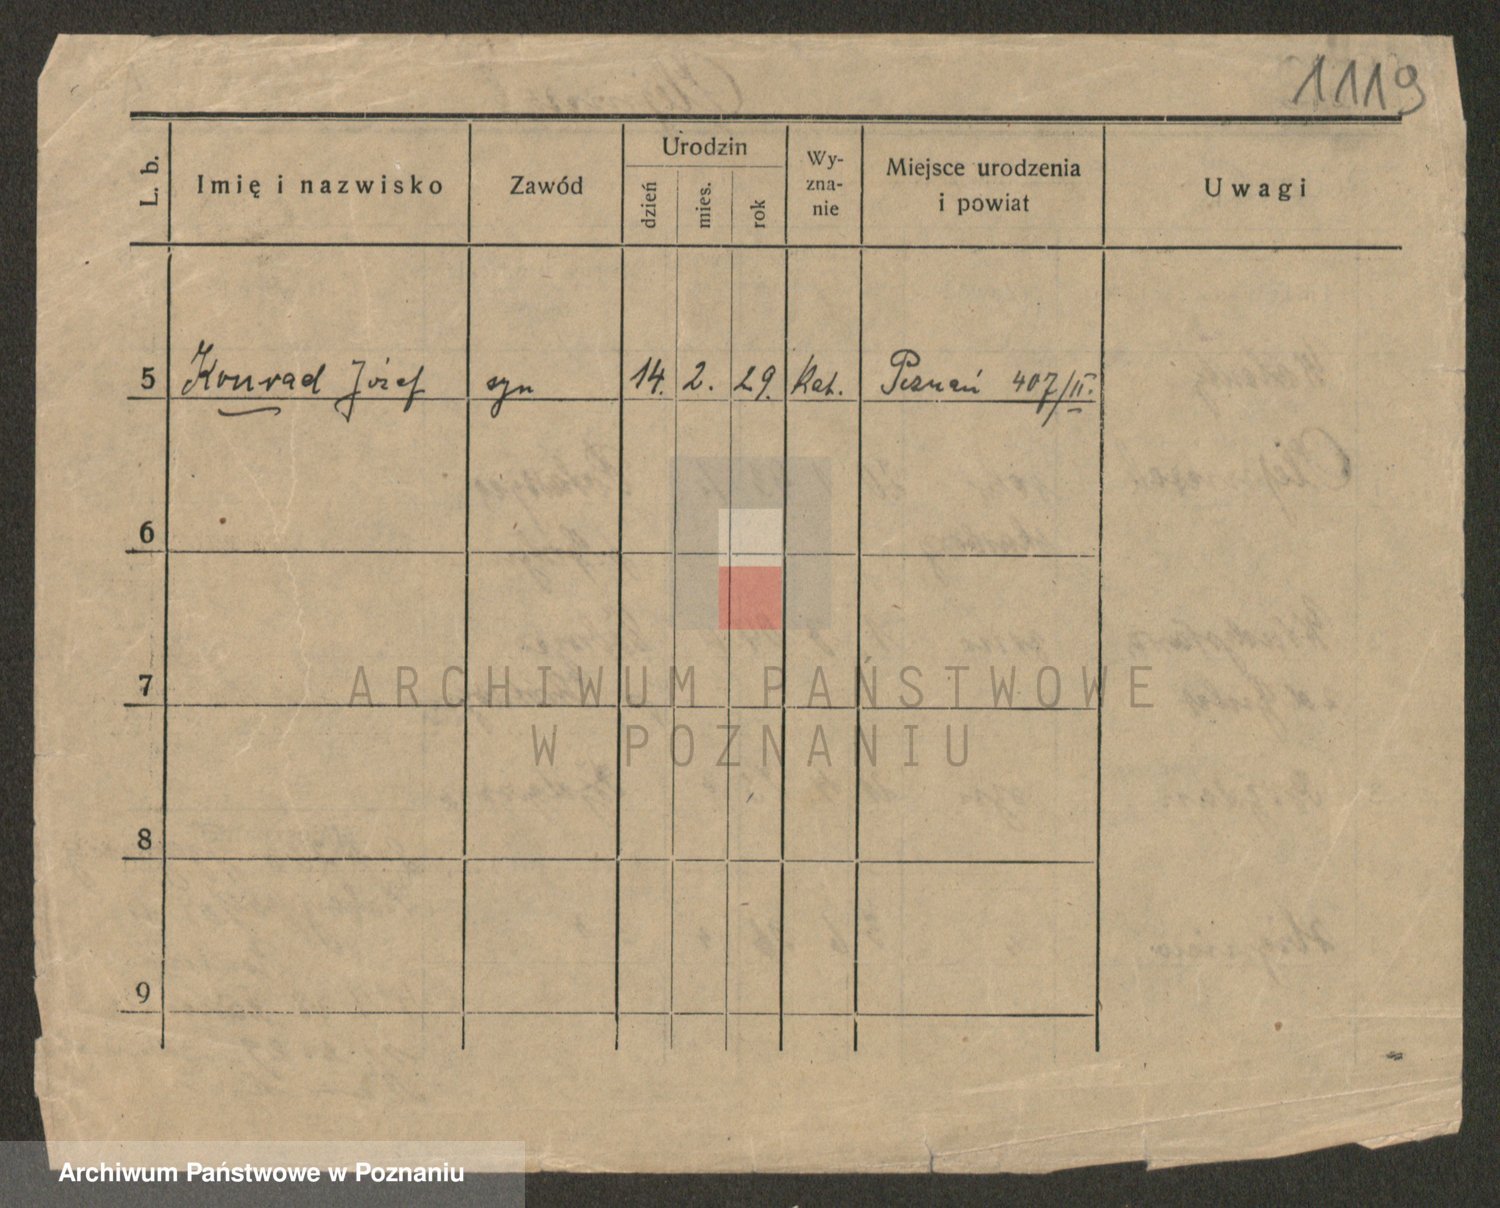 1119
L. b.
Imię i nazwisko
Zawód
Urodzin
dzień
mies.
rok
Wy-
zna-
nie
Miejsce urodzenia
i powiat
Uwagi
5 Konrad Józef syn 14. 2. 29. kat. Poznań 407/II.
6
7
8
9
ARCHIWUM PAŃSTWOWE
W POZNANIU
Archiwum Państwowe w Poznaniu